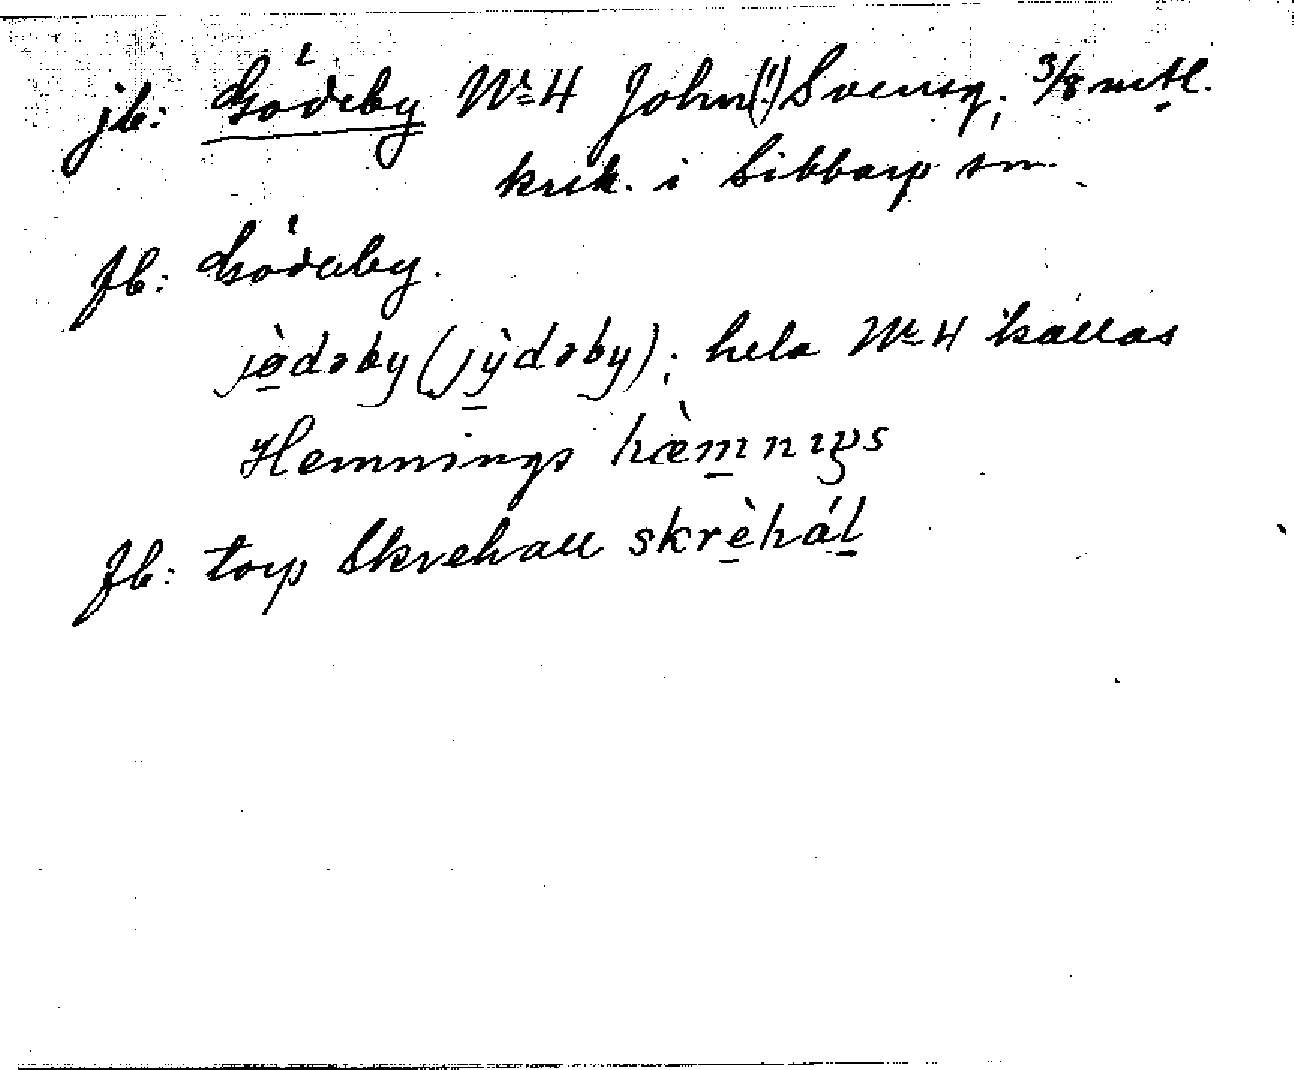 jb: Gödeby No 4 John(!) Svensg; 3/8 mtl.
krsk. i Sibbarp sn.
fb: Gödeby.
jø̀dəby (jỳdəby); hela No 4 kallas
Hemnings hæ̀mnıŋs
fb: torp Skrehall skrèhál